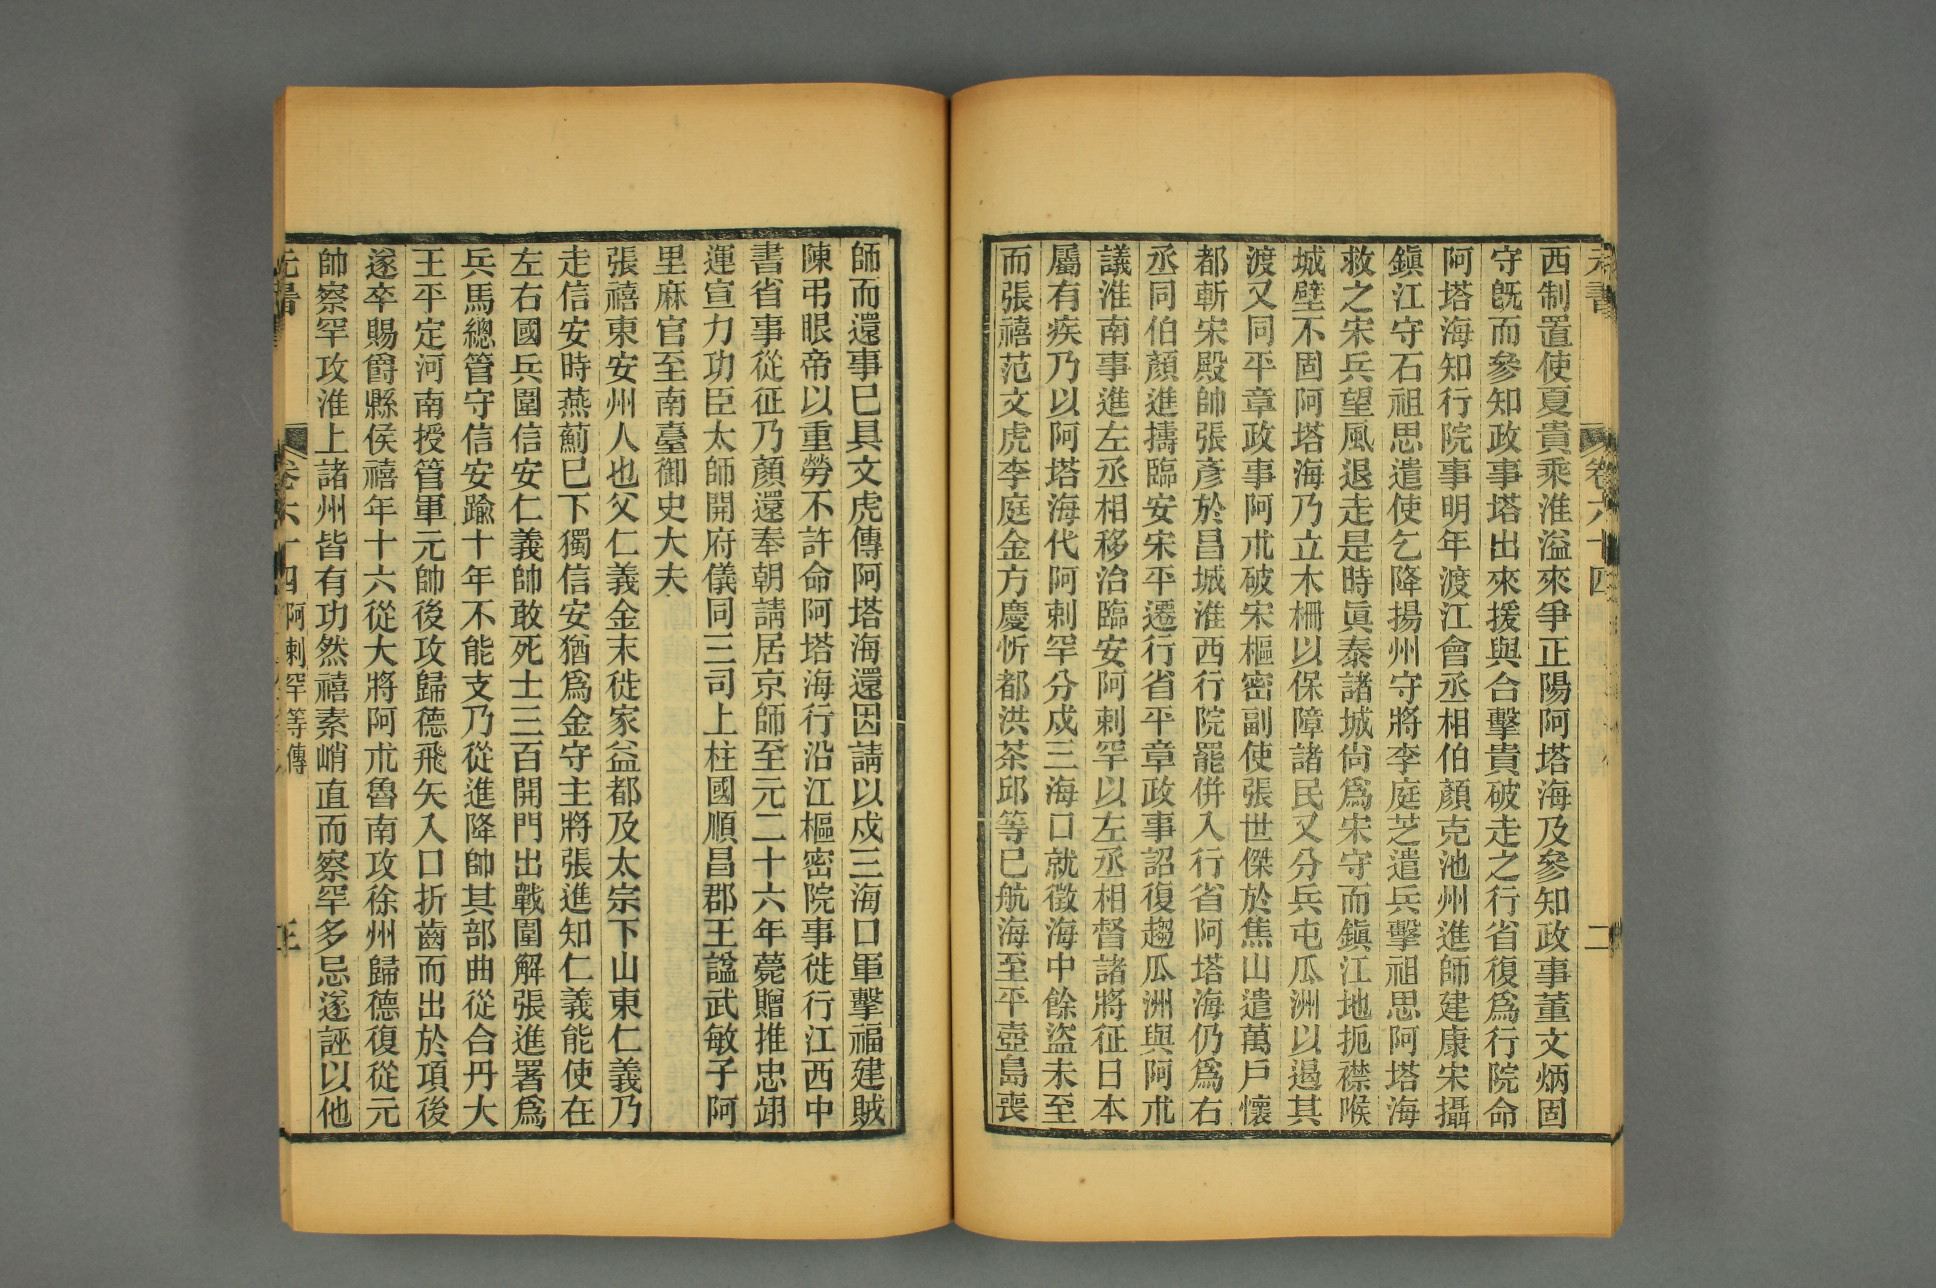 元書 卷六十四 二
西制置使夏貴乘淮溢來爭正陽阿塔海及參知政事董文炳固
守旣而參知政事塔出來援與合擊貴破走之行省復爲行院命
阿塔海知行院事明年渡江會丞相伯顏克池州進師建康宋攝
鎭江守石祖思遣使乞降揚州守將李庭芝遣兵擊祖思阿塔海
救之宋兵望風退走是時眞泰諸城尙爲宋守而鎭江地扼襟喉
城壁不固阿塔海乃立木柵以保障諸民又分兵屯瓜洲以遏其
渡又同平章政事阿朮破宋樞密副使張世傑於焦山遣萬戶懷
都斬宋殿帥張彥於昌城淮西行院罷倂入行省阿塔海仍爲右
丞同伯顏進擣臨安宋平遷行省平章政事詔復趨瓜洲與阿朮
議淮南事進左丞相移治臨安阿剌罕以左丞相督諸將征日本
屬有疾乃以阿塔海代阿剌罕分戍三海口就徵海中餘盜未至
而張禧范文虎李庭金方慶忻都洪茶邱等已航海至平壺島喪
師而還事已具文虎傳阿塔海還因請以戍三海口軍擊福建賊
陳弔眼帝以重勞不許命阿塔海行沿江樞密院事徙行江西中
書省事從征乃顏還奉朝請居京師至元二十六年薨贈推忠翊
運宣力功臣太師開府儀同三司上柱國順昌郡王謚武敏子阿
里麻官至南臺御史大夫
張禧東安州人也父仁義金末徙家益都及太宗下山東仁義乃
走信安時燕薊已下獨信安猶爲金守主將張進知仁義能使在
左右國兵圍信安仁義帥敢死士三百開門出戰圍解張進署爲
兵馬總管守信安踰十年不能支乃從進降帥其部曲從合丹大
王平定河南授管軍元帥後攻歸德飛矢入口折齒而出於項後
遂卒賜爵縣侯禧年十六從大將阿朮魯南攻徐州歸德復從元
帥察罕攻淮上諸州皆有功然禧素峭直而察罕多忌遂誣以他
元書 卷六十四 阿剌罕等傳 三